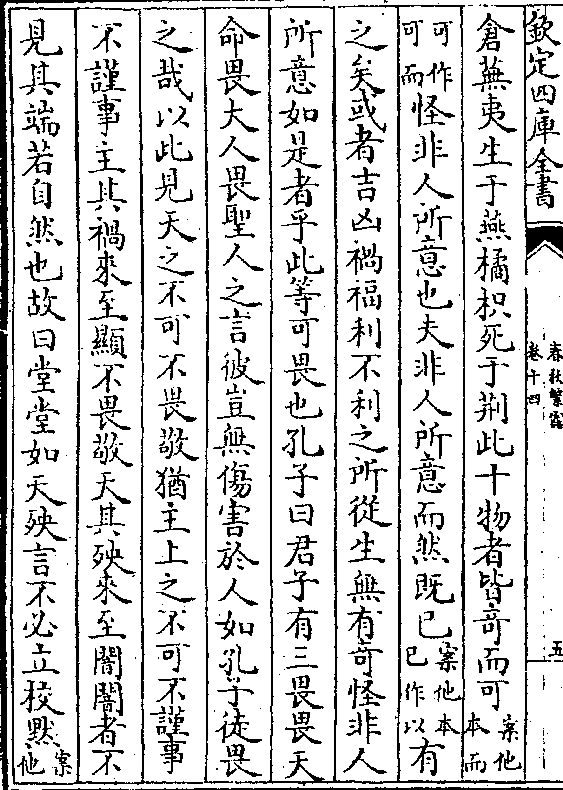 欽定四庫全書
春秋繁露
卷十四
五
倉蕪夷生于燕橘枳死于荆此十物者皆竒而可案他本而
可作可而怪非人所意也夫非人所意而然既已案他本已作以有
之矣或者吉凶禍福利不利之所從生無有竒怪非人
所意如是者乎此等可畏也孔子曰君子有三畏畏天
命畏大人畏聖人之言彼豈無傷害於人如孔子徒畏
之哉以此見天之不可不畏敬猶主上之不可不謹事
不謹事主其禍來至顯不畏敬天其殃來至闇闇者不
見其端若自然也故曰堂堂如天殃言不必立校默案他